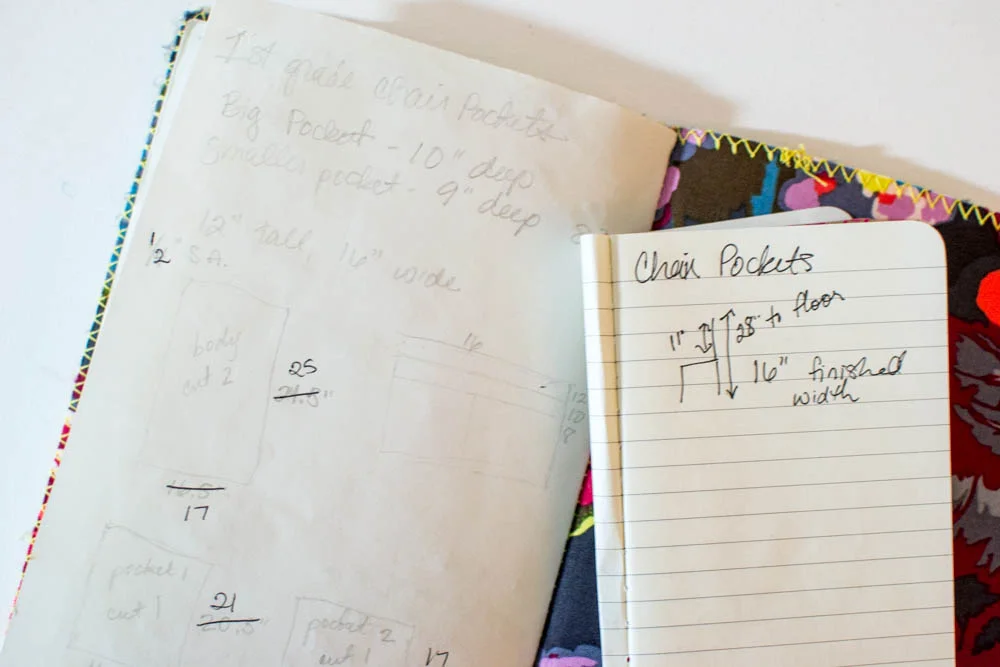 1st grade Chair Pockets
Big Pocket - 10" deep
Smaller pocket - 9" deep
12" tall, 16" wide
1/2" S.A.
body
cut 2
25
24.5"
16.5
17
16
12
10
8
pocket 1
cut 1
21
20.5"
pocket 2
cut 1
17
Chair Pockets
11"
28" to floor
16" finished
width